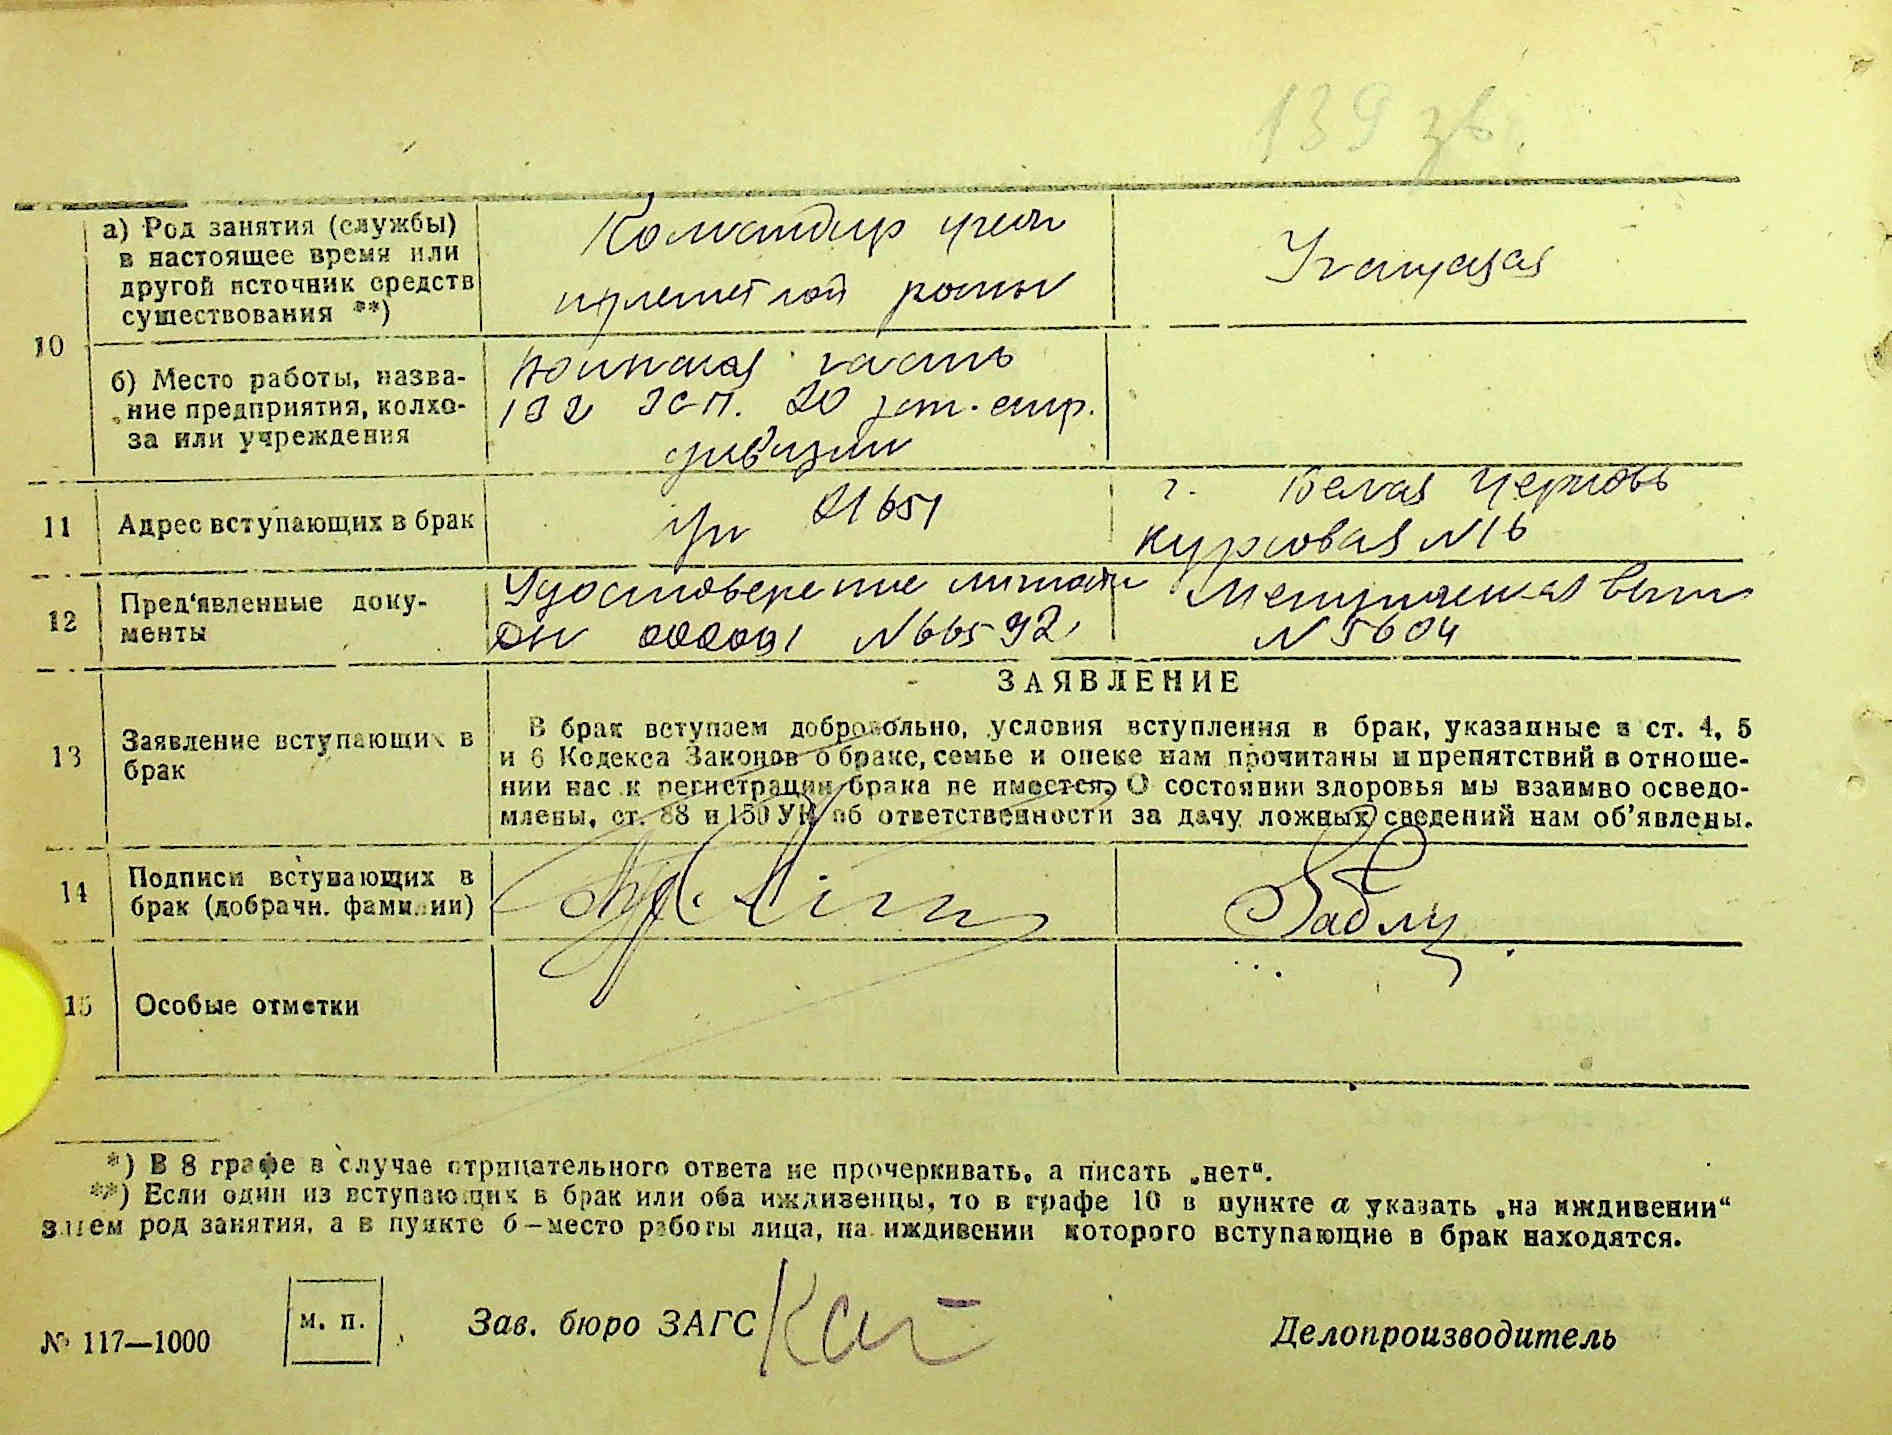 139 зв.
10
а) Род занятия (службы)
в настоящее время или
другой источник средств
существования **)
Командир учебн
пулеметной роты
Учащаяся
б) Место работы, назва-
ние предприятия, колхо-
за или учреждения
Воинская часть
192 зсп. 20 зап. стр.
дивизии
11
Адрес вступающих в брак
п/п 21651
г. Белая Церковь
Курсовая №16
12
Пред'явленные доку-
менты
Удостоверение личности
№66592
Метрическая вып
№5604
13
Заявление вступающих в
брак
ЗАЯВЛЕНИЕ
В брак вступаем добровольно, условия вступления в брак, указанные в ст. 4, 5
и 6 Кодекса Законов о браке, семье и опеке нам прочитаны и препятствий в отноше-
нии нас к регистрации брака не имеется. О состоянии здоровья мы взаимно осведо-
млены, ст. 88 и 150 УК об ответственности за дачу ложных сведений нам об'явлены.
14
Подписи вступающих в
брак (добрачн. фамилии)
15
Особые отметки
*) В 8 графе в случае отрицательного ответа не прочеркивать, а писать „нет“.
**) Если один из вступающих в брак или оба иждивенцы, то в графе 10 в пункте а указать „на иждивении“
затем род занятия, а в пункте б—место работы лица, на иждивении которого вступающие в брак находятся.
№ 117—1000
м. п.
Зав. бюро ЗАГС
Делопроизводитель